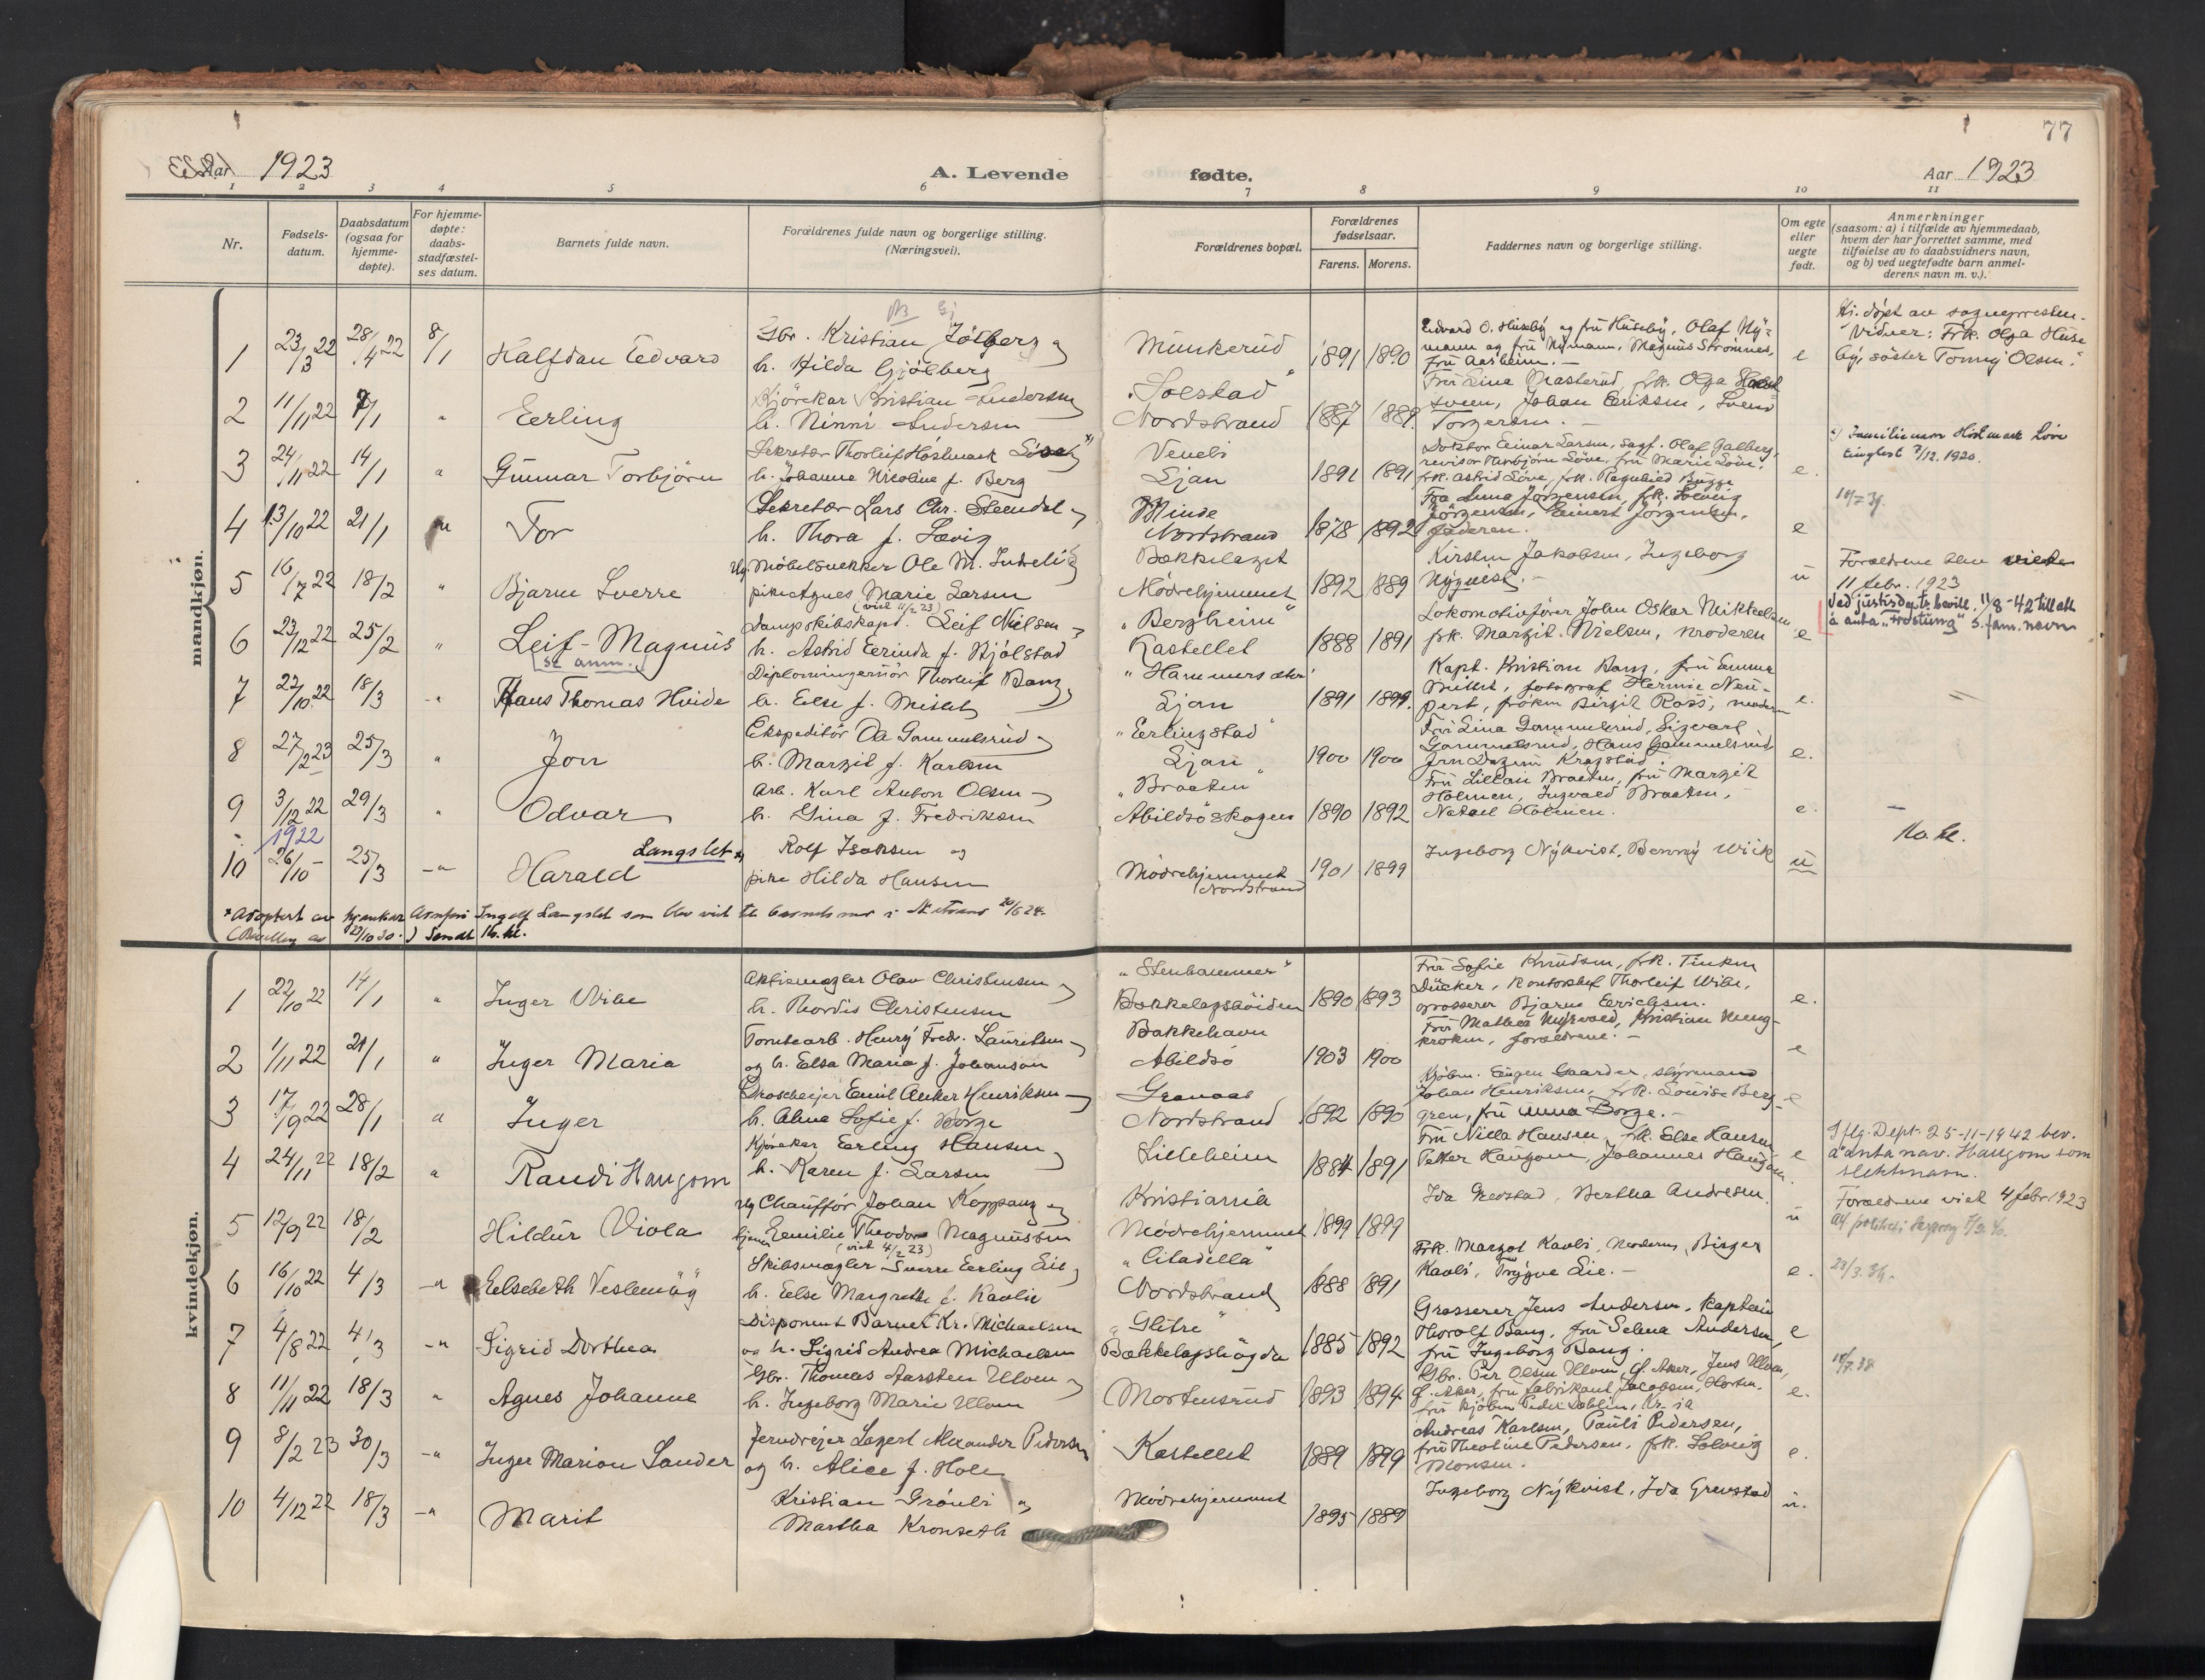 77
Aar 1923
A. Levende
fødte.
Aar 1923
1 2 3 4 5 6 7 8 9 10 11
Nr.
Fødsels-
datum.
Daabsdatum
(ogsaa for
hjemme-
døpte).
For hjemme-
døpte:
daabs-
stadfæstel-
ses datum.
Barnets fulde navn.
Forældrenes fulde navn og borgerlige stilling.
(Næringsvei).
Forældrenes bopæl.
Forældrenes
fødselsaar.
Farens. Morens.
Faddernes navn og borgerlige stilling.
Om egte
eller
uegte
født.
Anmerkninger
(saasom: a) i tilfælde av hjemmedaab,
hvem der har forrettet samme, med
tilføielse av to daabsvidners navn,
og b) ved uegtefødte barn anmel-
derens navn m. v.).
mandkjøn.
1 23/3 22 28/4 22 8/1 Halfdan Edvard
Gbr. Kristian Jølberg og
h. Hilda Gjølberg
Munkerud 1891 1890
Edvard O. Huseby og fru Huseby, Olaf Ny-
mann og fru Nymann, Magnus Strømnes,
fru Aasheim. —
e
Hj. døpt av sognepresten.
Vidner: Frk. Olga Huse
by, søster Tonny Olsen.
2 11/11 22 7/1 " Erling
Kjørekar Kristian Andersen
h. Ninni Andersen
"Solstad"
Nordstrand 1887 1889
Fru Lina Masterud, frk. Olga
sveen, Johan Eriksen, Svend
Torgersen. —
3 24/11 22 14/1 " Gunnar Torbjørn
Sekretær Thorleif Høstmark Løve x)
h. Johanne Nicoline f. Berg
Venebi
Ljan 1891 1891
Doktor Einar Larsen, sagf. Olaf Galberg,
revisor Thorbjørn Løve, fru Marie Løve,
frk. Astrid Løve, frk. Ragnhild Bugge
e.
x) Familienavn Høstmark Løve
tinglest 7/12. 1920.
4 13/10 22 21/1 " Tor
Sekretær Lars Chr. Steendal og
h. Thora f. Lovig
Minde
Nordstrand 1878 1892
Fra Anna Jørgensen, frk. Solveig
Jørgensen, Einert Jørgensen,
faderen.
e
5 16/7 22 18/2 " Bjarne Sverre
Ug. Møbelsnekker Ole M.
pike Agnes Marie Larsen
(viet 11/2 23)
Bækkelaget
Mødrehjemmet 1892 1889
Kirsten Jakobsen, Ingeborg
Nyqvist. —
u
Forældrene blev viede
11 febr. 1923
6 23/12 22 25/2 " Leif-Magnus
se anm.
Dampskibskapt. Leif Nielsen og
h. Astrid Erinda f. Kjølstad
"Bergheim"
Kastellet 1888 1891
Lokomotivfører John Oskar Mikkelsen
frk. Margit Nielsen, moderen
e
Ved justisdepts bevill. 11/8-42 till. att
å anta s. fam. navn
7 22/10. 22 18/3 -" Hans Thomas Hvide
Diplomingeniør Thorleif Bang
h. Else f. Mislet
"Hammersæter"
Ljan 1891 1899.
Kapt. Kristian Bang, fru Emma
Mislet, fotograf Hermie Neu-
pert, frøken Birgit Ross, moderen
e.
8 27/2 23 25/3 " Jon
Ekspeditør Ola Gammelsrud og
h. Margit f. Karlsen
"Erlingstad"
Ljan 1900 1900
Fru Lina Gammelsrud, Sigvart
Gammelsrud, Hans Gammelsrud
fru Dagny Kragstad.
e.
9 3/12 22 29/3 " Odvar
Arb. Karl Anton Olsen og
h. Gina f. Fredriksen
"Braaten"
Abildsøskogen 1890 1892
Fru Lillian Braaten, fru Margit
Holmen, Ingvald Braaten,
Natael Holmen.
e.
1922
10 26/10 - 25/3 -" Harald Langslet x)
Rolf Isaksen og
pike Hilda Hansen
Mødrehjemmet
Nordstrand 1901 1899
Ingeborg Nykvist, Benny Wiik
u
16. kl.
*Adoptert av Ingolf Langslet som blev viet til barnets mor i 20/6 24.
(Bevilling av 23/10 30.) Sendt 16. kl.
kvindekjøn.
1 22/10 22 14/1 " Inger Wibe
Aktiemegler Olav Christensen og
h. Thordis Christensen
"Stenhammer"
Bækkelagshøiden 1890 1893
Fru Sofie Knudsen, frk. Tinken
Dücker, kontorchef Thorleif Wibe,
grosserer Bjarne Erichsen.
e.
2 1/11 22 21/1 " Inger Maria
Tomtearb. Henry Fredr. Lauritsen
og h. Elsa Maria f. Johanson
Bakkehavn
Abildsø 1903 1900
Fru Mathea Nysveld, Kristian Meng-
kroken, forældrene. —
e
3 17/9 22 28/1 " Inger
Droscheeier Emil Anker Henriksen og
h. Alma Sofie f. Borge
Granaas
Nordstrand 1892 1890
Kjøbm. Eugen Gaarder, styrmand
Johan Henriksen, frk. Louise Berg-
gren, fru Anna Borge. —
e
4 24/11 22 18/2 " Randi Haugom
Kjørekar Erling Hansen og
h. Karen f. Larsen
Lilleheim
1884 1891
Fru Nilla Hansen, frk. Else Hansen,
Petter Haugom, Johannes Haugom.
e
Iflg. Dept. 25-11-1942 bev.
å anta nav. Haugom som
slektsnavn.
5 12/9 22 18/2 Hildur Viola
Ug Chauffør Johan Koppang og
Emilie Theodora Magnussen
(viet 4/2 23)
Kristiania
Mødrehjemmet 1899 1899
Ida Grevstad, Bertha Andresen.
u
Forældrene viet 4 febr 1923
6 16/10 22 4/3 -" Elsebeth Veslemøy
Skibsmegler Sverre Erling Lie og
h. Else Margrethe f. Kavli
"Citadella"
Nordstrand 1888 1891
Frk. Margot Kavli, Moderen, Birger
Kavli, Trygve Lie. —
e.
23/3.34.
7 4/8 22 4/3 -" Sigrid Dorthea
Disponent Barner Kr. Michaelsen
og h. Sigrid Andrea Michaelsen
"Glitre"
Bækkelagshøgda 1885 1892
Grosserer Jens Andersen, Kaptein
Thoralf Bang, fru Selma Andersen,
fru Ingeborg Bang.
e
8 11/11 22 18/3 " Agnes Johanne
Gbr. Thomas Aarsten Ulven og
h. Ingeborg Marie Ulven
Mortensrud 1893 1894
Gbr. Per Olsen Ulven, Ø. Aker, Jens Ulven,
Ø. Aker, fru fabrikant Jacobsen, Horten.
fru kjøbm. Peder Døhlen, Kr.ia
e.
9 8/2 23 30/3 -" Inger Marion Sander
Jerndreier Lagert Alexander Pedersen
og h. Alice f. Hole
Kastellet 1889 1899
Andreas Karlsen, Pauli Pedersen,
fru Theoline Pedersen, frk. Solveig
Monsen.
e.
10 4/12 22 18/3 -" Marit
Kristian Grønli og
Martha Kronseth
Mødrehjemmet
1895 1889
Ingeborg Nykvist, Ida Grevstad
u.